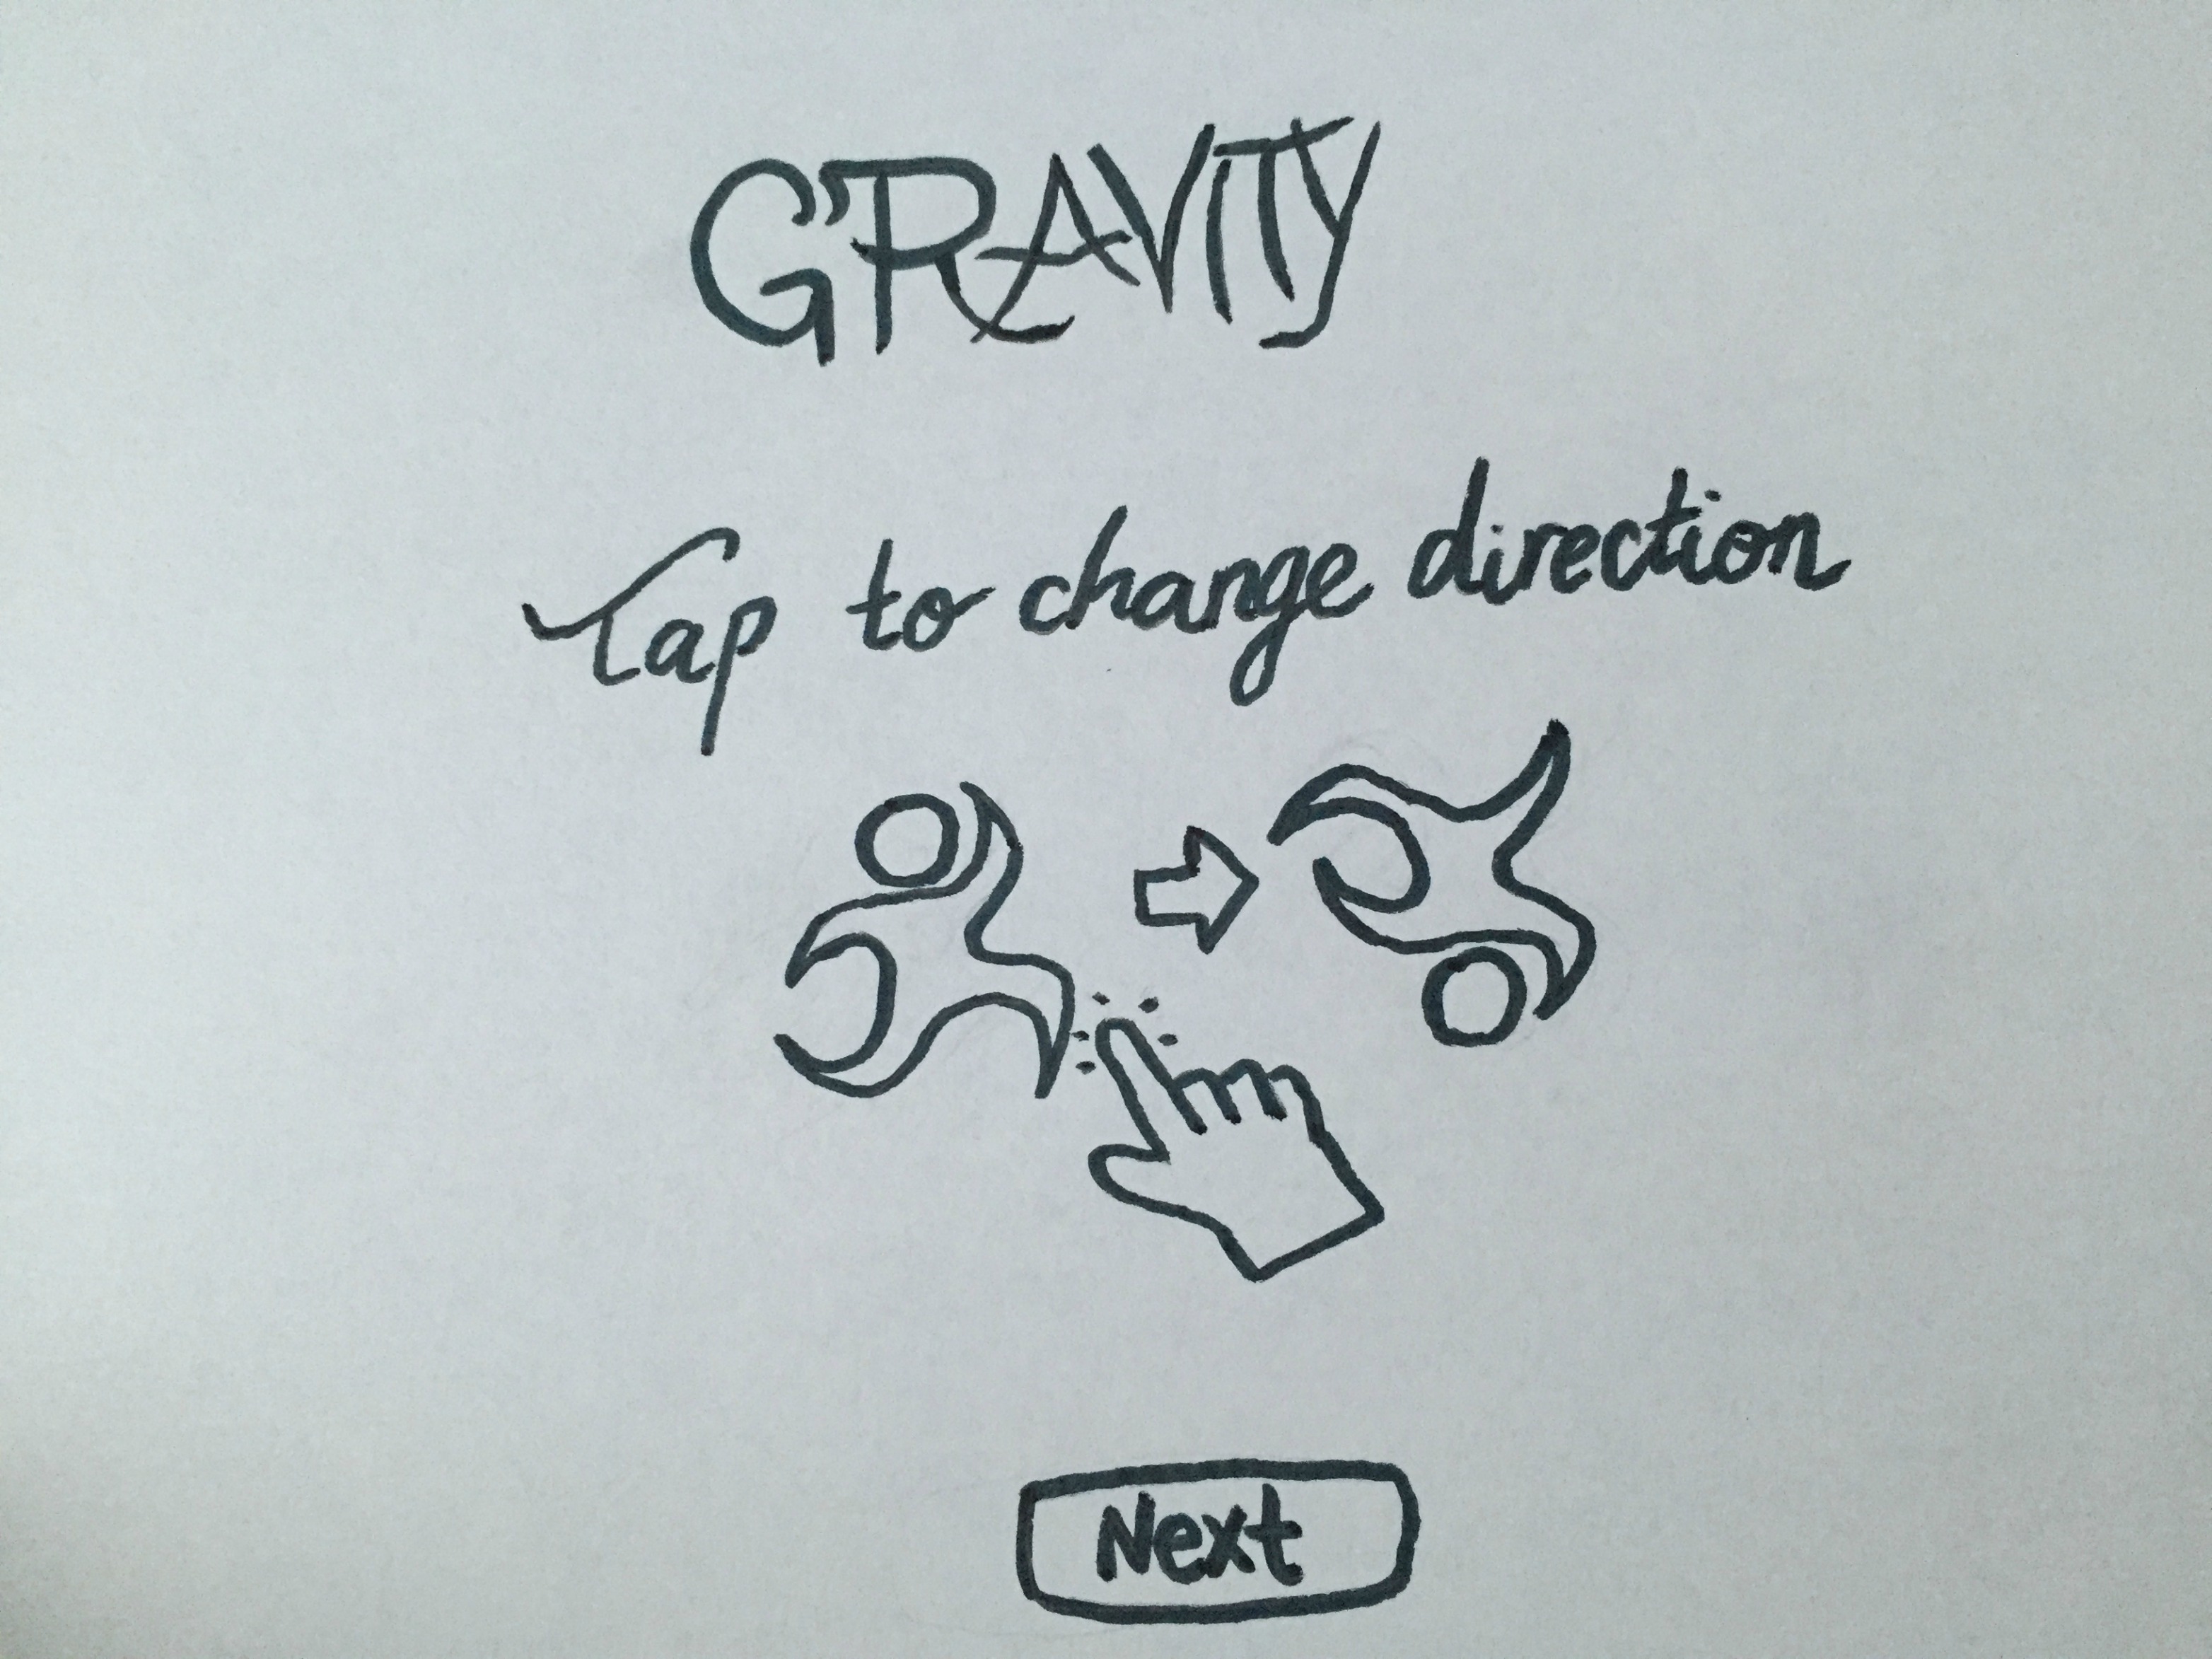 GRAVITY
Tap to change direction
Next